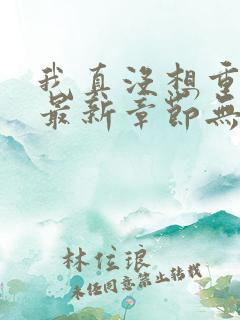 我真没想重
最新章節無
林弦琅
未经同意禁止转载